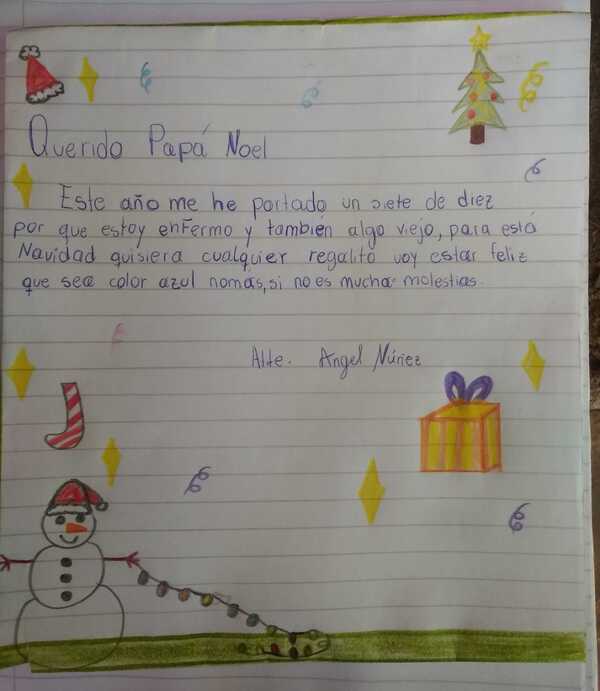 Querido Papá Noel
Este año me he portado un siete de diez
por que estoy enfermo y también algo viejo, para está
Navidad quisiera cualquier regalito voy estar feliz
que sea color azul nomas, si no es mucha molestias.
Atte. Angel Núñez